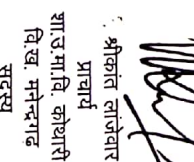 : श्रीकांत लांजेवार
प्राचार्य
शा.उ.मा.वि. कोथारी
वि.ख. मनेन्द्रगढ़
सदस्य